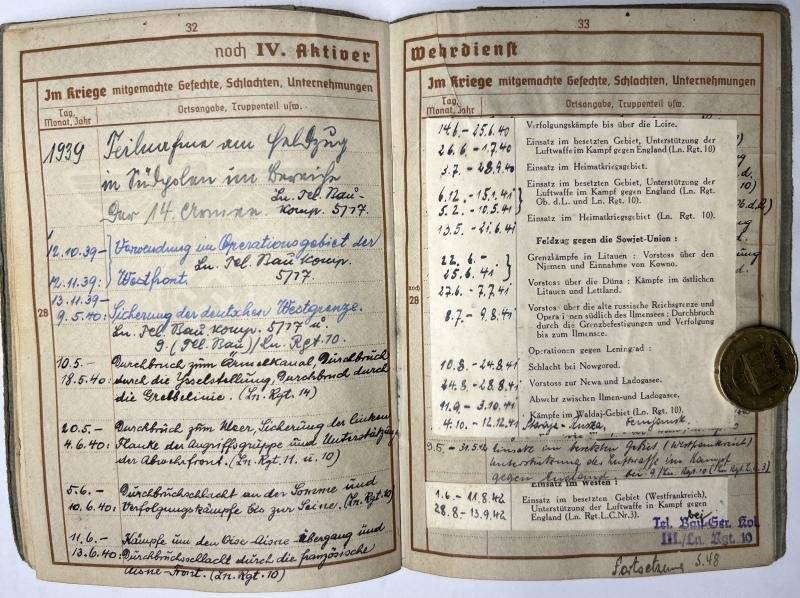 32
noch IV. Aktiver
Im Kriege mitgemachte Gefechte, Schlachten, Unternehmungen
Tag, Monat, Jahr
Ortsangabe, Truppenteil usw.
28
1939 Teilnahme am Feldzug
in Südpolen im Bereiche
Ln. Tel. Bau-
Der 14. Armee. Komp. 5/17.
12.10.39- Verwendung im Operationsgebiet der
Ln. Tel. Baukomp.
12.11.39- Westfront. 5/17
13.11.39-
9.5.40: Sicherung der deutschen Westgrenze.
Ln. Tel. Bau Komp. 5/17 u.
9. (Tel. Bau)/Ln. Rgt. 10.
10.5.- Durchbruch zum Ärmelkanal, Durchbruch
18.5.40: durch die Ysselstellung, Durchbruch durch
die Grebbelinie. (Ln. Rgt. 14)
20.5.- Durchbruch zum Meer, Sicherung der linken
4.6.40: Flanke der Angriffsgruppe und Unterstützung
der Abwehrfront. (Ln. Rgt. 11. u. 10)
5.6.- Durchbruchschlacht an der Somme und
10.6.40: Verfolgungskämpfe bis zur Seine. (Ln. Rgt. 10)
11.6.- Kämpfe um den Oise-Aisne-Übergang und
13.6.40: Durchbruchsschlacht durch die französische
Aisne-Front. (Ln. Rgt. 10)
33
Wehrdienst
Im Kriege mitgemachte Gefechte, Schlachten, Unternehmungen
Tag, Monat, Jahr
Ortsangabe, Truppenteil usw.
noch
28
14.6.- 25.6.40 Verfolgungskämpfe bis über die Loire.
26.6.- 1.7.40 Einsatz im besetzten Gebiet, Unterstützung der
Luftwaffe im Kampf gegen England (Ln. Rgt. 10)
3.7.- 28.9.40 Einsatz im Heimatkriegsgebiet.
6.12.- 15.1.41 Einsatz im besetzten Gebiet, Unterstützung der
Luftwaffe im Kampf gegen England (Ln. Rgt.
5.2.- 10.5.41 Ob. d. L. und Ln. Rgt. 10).
13.5.- 21.6.41 Einsatz im Heimatkriegsgebiet (Ln. Rgt. 10).
Feldzug gegen die Sowjet-Union :
22.6.- Grenzkämpfe in Litauen : Vorstoss über den
25.6.41 Njemen und Einnahme von Kowno.
27.6.- 7.7.41 Vorstoss über die Düna : Kämpfe im östlichen
Litauen und Lettland.
8.7.- 9.8.41 Vorstoss über die alte russische Reichsgrenze und
Operationen südlich des Ilmensees : Durchbruch
durch die Grenzbefestigungen und Verfolgung
bis zum Ilmensee.
Operationen gegen Leningrad :
10.8.- 24.8.41 Schlacht bei Nowgorod.
24.8.- 28.8.41 Vorstoss zur Newa und Ladogasee.
11.9.- 3.10.41 Abwehr zwischen Ilmen-und Ladogasee.
Kämpfe im Waldaj-Gebiet (Ln. Rgt. 10).
4.10.- 12.12.41
9.5.- 31.5.42 Einsatz im besetzten Gebiet (Westfrankreich)
Unterstützung der Luftwaffe im Kampf
gegen England bei 9./Ln. Rgt. 10
Einsatz im Westen :
1.6.- 11.8.42 Einsatz im besetzten Gebiet (Westfrankreich),
Unterstützung der Luftwaffe im Kampf gegen
28.8.- 13.9.42 England (Ln. Rgt. L.C.Nr.3). bei
Tel. Bau Ger. Kol.
III./Ln. Rgt. 10
Fortsetzung S. 48